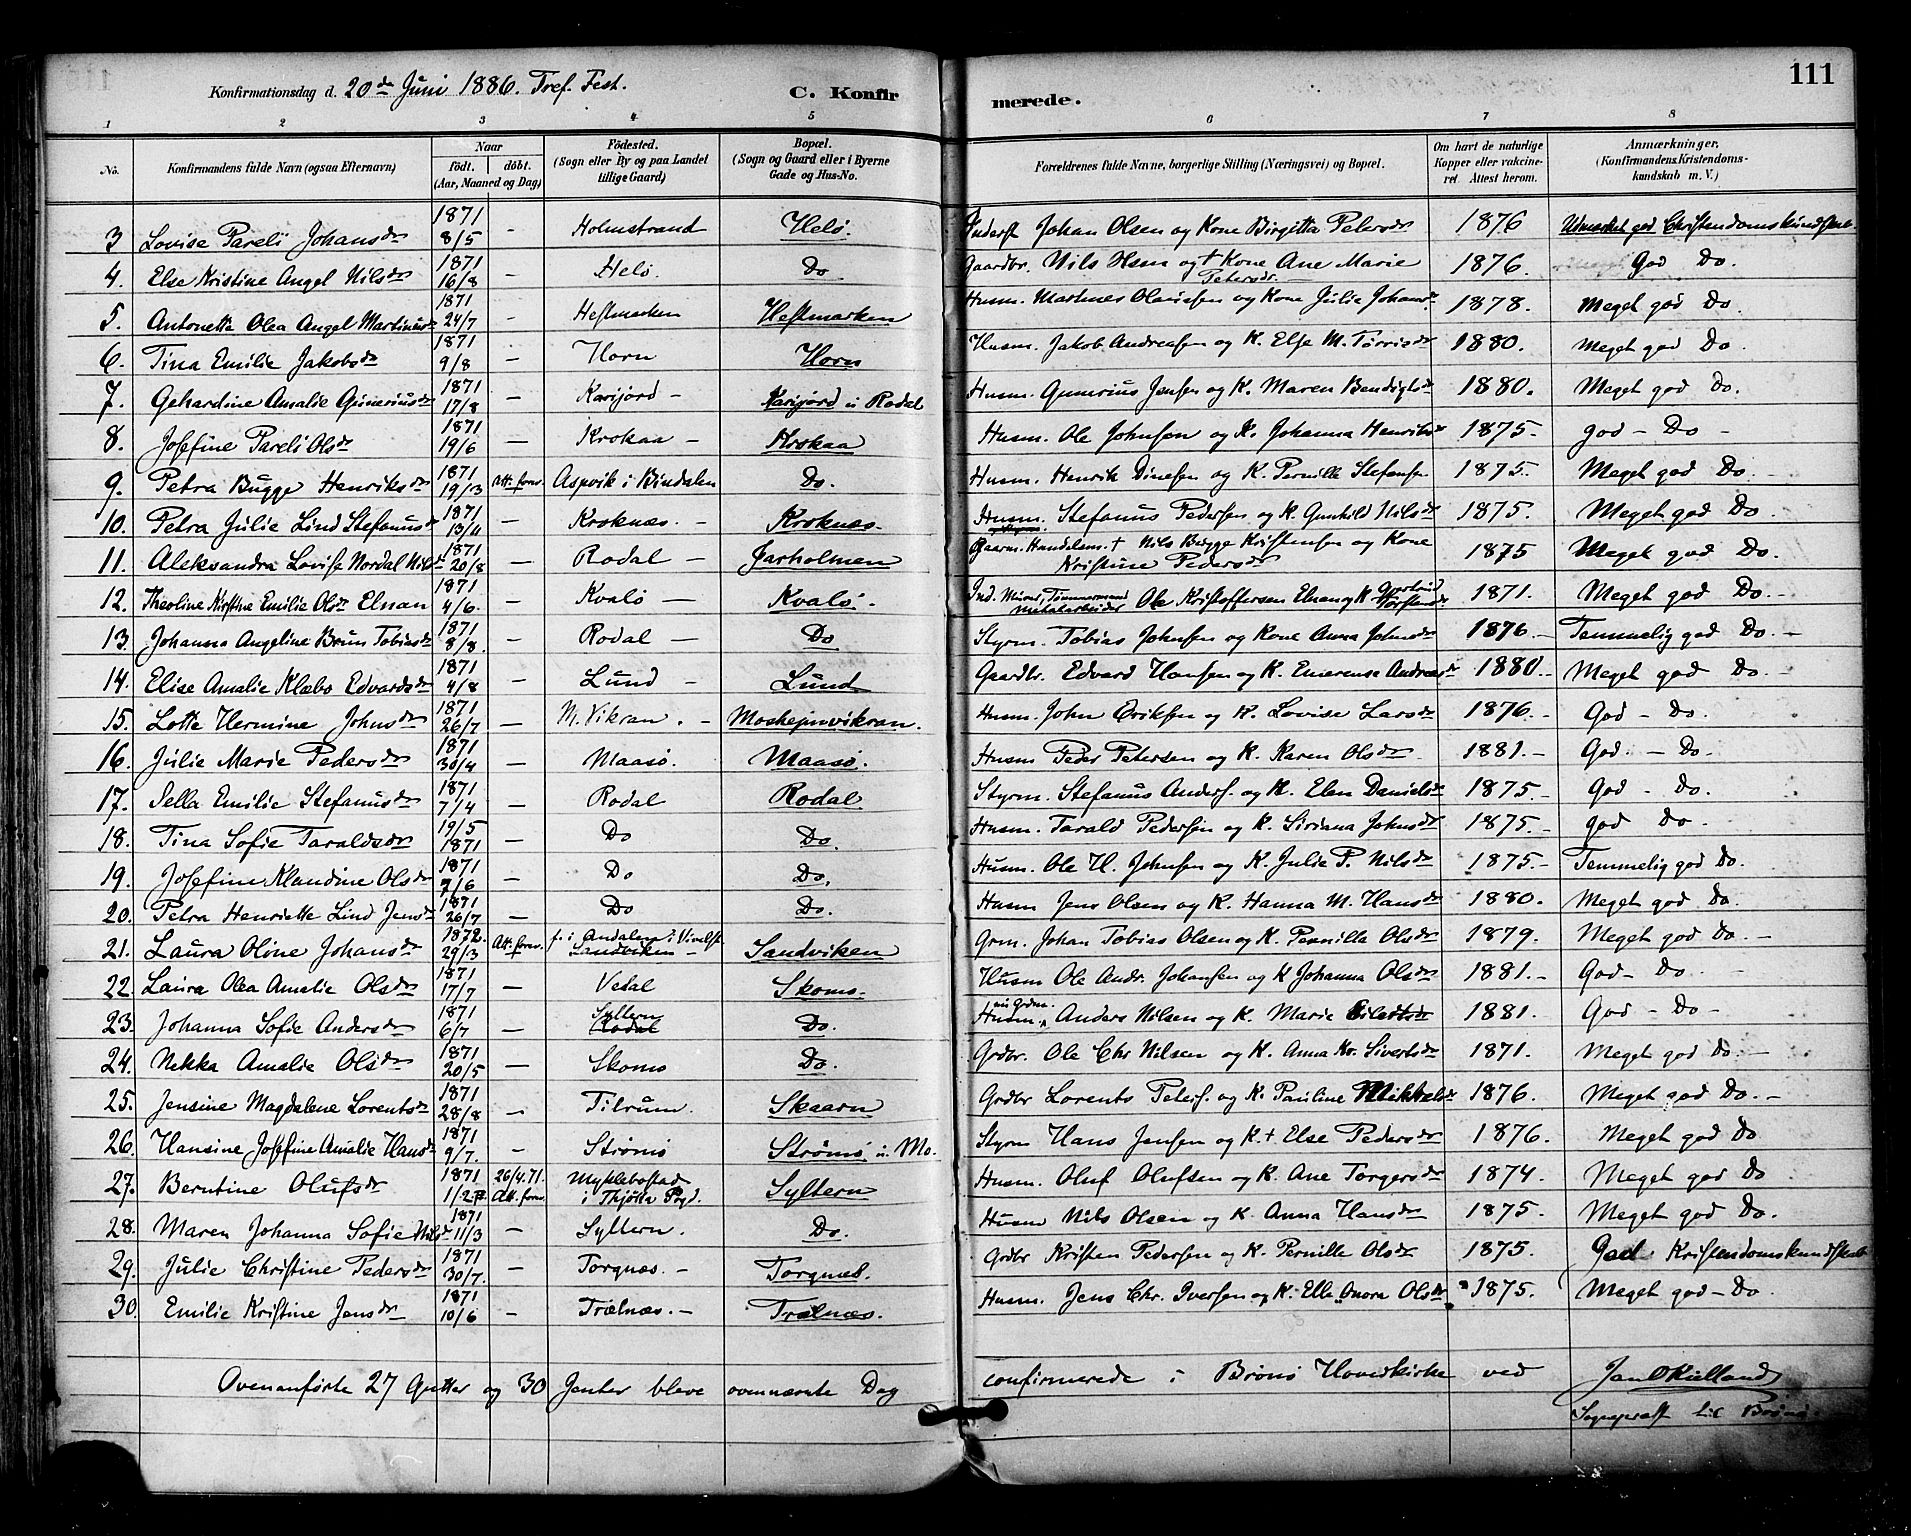 111
Konfirmationsdag d. 20de Juni 1886. Tref. Fest. C. Konfir merede.
1 2 3 4 5 6 7 8
No. Konfirmandens fulde Navn (ogsaa Efternavn) Naar født. døbt. (Aar, Maaned og Dag) Fødested. (Sogn eller By og paa Landet tillige Gaard) Bopæl. (Sogn og Gaard eller i Byerne Gade og Hus-No. Forældrenes fulde Navne, borgerlige Stilling (Næringsvei) og Bopæl. Om havt de naturlige Kopper eller vaccineret. Attest herom. Anmærkninger. (Konfirmandens Kristendomskundskab m. V.)
3 Lovise Pareli Johansdr 1871 8/5 - Holmstrand Helø. Inderst Johan Olsen og Kone Birgitta Petersdr 1876 Udmerket god Christendomskundskab
4. Else Kristine Angel Nilsdr 1871 16/8 - Helø. Do Gaardbr. Nils Hsen og + Kone Ane Marie Petersdr 1876. God Do.
5. Antonetta Olea Angel Martinusdr 1871 24/7 - Hestmarken Hestmarken Husm. Martines Olaussen og Kone Julie Johansdr 1878. Meget god Do.
6. Tina Emilie Jakobsdr 1871 9/8 - Horn Horn Husm. Jakob Andreasen og K. Else M. Torrisdr 1880. Meget god Do.
7. Gehardine Amalie Guneriusdr 1871 17/8 - Karijord - Karijord u Rodal Husm. Gunerius Jensen og K. Maren Bendigtsdr 1880. Meget god Do.
8. Josefine Pareli Olsdr 1871 19/6 - Krokaa - Krokaa Husm. Ole Johnsen og K. Johanna Henriksdr 1875. god - Do -
9. Petra Bugge Henriksdr 1871 19/3 Att. forev. Aspvik i Bindalen Do. Husm. Henrik Dinesen og K. Pernille Stefansdr 1875. Meget god Do.
10. Petra Julie Lind Stefanusdr 1871 13/4 - Kroknæs. - Kroknæs. Husm. Stefanus Pedersen og K. Gunhild Nilsdr 1875 Meget god Do
11. Aleksandra Lovise Nordal Nilsdr 1871 20/8 - Rodal - Jarholmen Gaarm. Handelsm. + Nils Bugge Kristensen og Kone Kristine Pedersdr 1875 Meget god Do.
12. Theoline Kirstine Emilie Olsdr Elnan 1871 4/6. - Kvalø - Kvalø. Ind. Tømmermand Ole Kristoffersen Elnan og K. 1871. Meget god Do.
13. Johanna Angeline Brun Tobiasdr 1871 8/8. - Rodal - Do Styrm. Tobias Johnsen og Kone Anna Johnsdr 1876 - Temmelig god Do. -
14. Elise Amalie Klæbo Edvardsdr 1871 4/8 - Lund - Lund Gaardbr. Edvard Hansen og K. Emerense Andreasdr 1880. - Meget god Do. -
15. Lotte Hermine Johnsdr 1871 26/7 - M. Vikran. - Mosheimvikran. Husm. John Eriksen og K. Lovise Larsdr 1876. - God - Do.
16. Julie Marie Pedersdr 1871 30/4 - Maasø. Maasø. Husm Peder Petersen og K. Karen Olsdr 1881. - God. - Do.
17. Sella Emilie Stefanusdr 1871 7/4 - Rodal Rodal Styrm. Stefanus Anders. og K. Elen Danielsdr 1875. - God - Do.
18. Tina Sofie Taraldsdr 19/5 1871 - Do Do. Husm. Tarald Pedersen og K. Siriana Johnsdr 1875. - God Do.
19. Josefine Klaudine Olsdr 1871 7/6 - Do Do. Husm. Ole H. Johnsen og K. Julie P. Nilsdr 1875 - Temmelig god Do.
20. Petra Henriette Lind Jensdr 1871 26/7 - Do Do. Husm Jens Olsen og K. Hanna M. Hansdr 1880. Meget god Do.
21. Laura Oline Johansdr 1872. 29/3 Att. forev. f. i Andalen i Vivelst. Sandviken - Sandviken Grm. Johan Tobias Olsen og K. Pernilla Olsdr 1879. Meget god Do. -
22. Laura Olea Amalie Olsdr 1871 17/7 - Vedal Skomo. Husm Ole Andr. Johansen og K Johanna Olsdr 1881. - God - Do.
23. Johanna Sofie Andersdr 1871 6/7 - Syltern Rodal Do. Husm. nu Grdm. Anders Nilsen og K. Marie Eilertsdr 1881. God - Do -
24. Nekka Amalie Olsdr 1871 20/5 - Skomo Do. Grdbr. Ole Chr Nilsen og K. Anna Kr. Sivertsdr 1871. Meget god Do. -
25. Jensine Magdalene Lorentsdr 1871 28/8 - Tilrum. Skaarn Grdbr Lorents Peters. og K. Pauline Mikkelsdr 1876. Meget god Do. -
26. Hansine Josefine Amalie Hansdr 1871 9/7. - Strømø Strømø u. Mo. Styrm Hans Jensen og K + Else Pedersdr 1876. Meget god Do
27. Berntine Olufsdr 1871 1/2 26/4.71. Att. forev. Myklebostad i Thjøtta Prgd. Syltern Husm. Oluf Olufsen og K. Ane Torgersdr 1874 Meget god Do
28. Maren Johanna Sofie Nilsdr 1871 11/3 - Syltern. Do. Husm Nils Olsen og K Anna Hansdr 1875. Meget god Do.
29. Julie Christine Pedersdr 1871 30/7. - Torgnæs. - Torgnæs. Grdbr Kristen Pedersen og K. Pernille Olsdr 1875. God Kristendomskundskab
30. Emilie Kristine Jensdr 1871 10/6 - Trælnæs. - Trælnæs. Husm. Jens Chr. Iversen og K. Elle Onora Olsdr 1875. Meget god - Do
Ovenanførte 27 Gutter og 30 Jenter bleve ovennævnte Dag confirmerede i Brønø Hovedkirke ved Jan O Kielland
Sognepræst til Brønø.